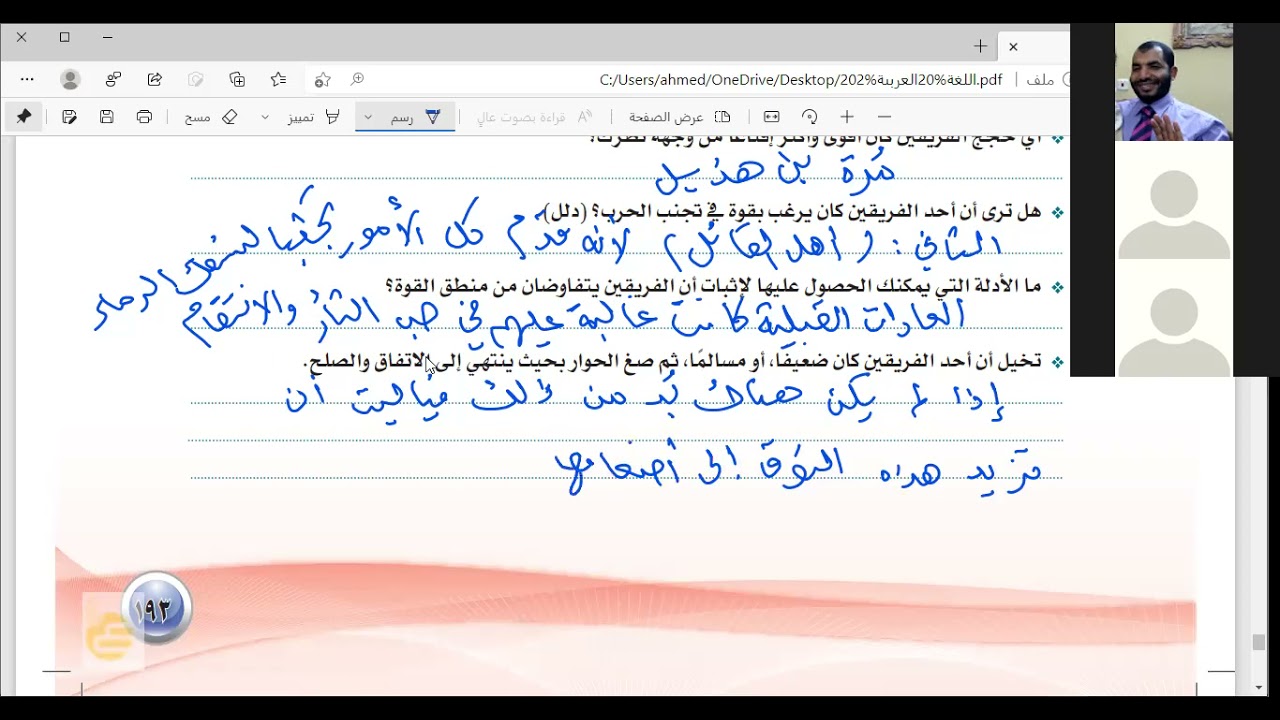 C:/Users/ahmed/OneDrive/Desktop/202%اللغة%20العربية.pdf
ملف
مسح
تمييز
رسم
قراءة بصوت عالٍ
عرض الصفحة
أي حجج الفريقين كان أقوى وأكثر إقناعًا من وجهة نظرك؟
مُرة بن هذيل
هل ترى أن أحد الفريقين كان يرغب بقوة في تجنب الحرب؟ (دلل)
الثاني: (أهل القاتل) لأنه قدّم كل الأمور تجنُّبا لسفك الدماء
ما الأدلة التي يمكنك الحصول عليها لإثبات أن الفريقين يتفاوضان من منطق القوة؟
العادات القبلية كانت غالبة عليهم في حب الثأر والانتقام
تخيل أن أحد الفريقين كان ضعيفًا، أو مسالمًا، ثم صغ الحوار بحيث ينتهي إلى الاتفاق والصلح.
إذا لم يكن هناك بُد من ذلك فياليت أن
تزيد هذه النوق إلى أضعافها
١٩٣